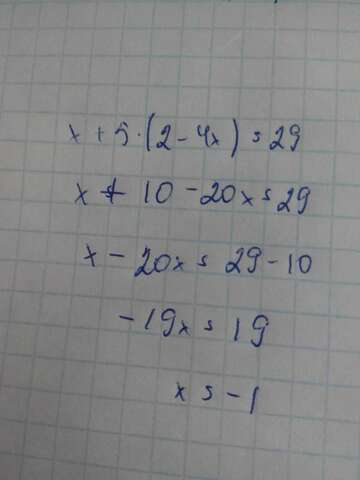 x + 5 · (2 - 4x) = 29
x + 10 - 20x = 29
x - 20x = 29 - 10
-19x = 19
x = -1